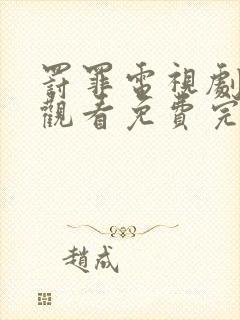 罰罪電視劇
觀看免費完
趙成